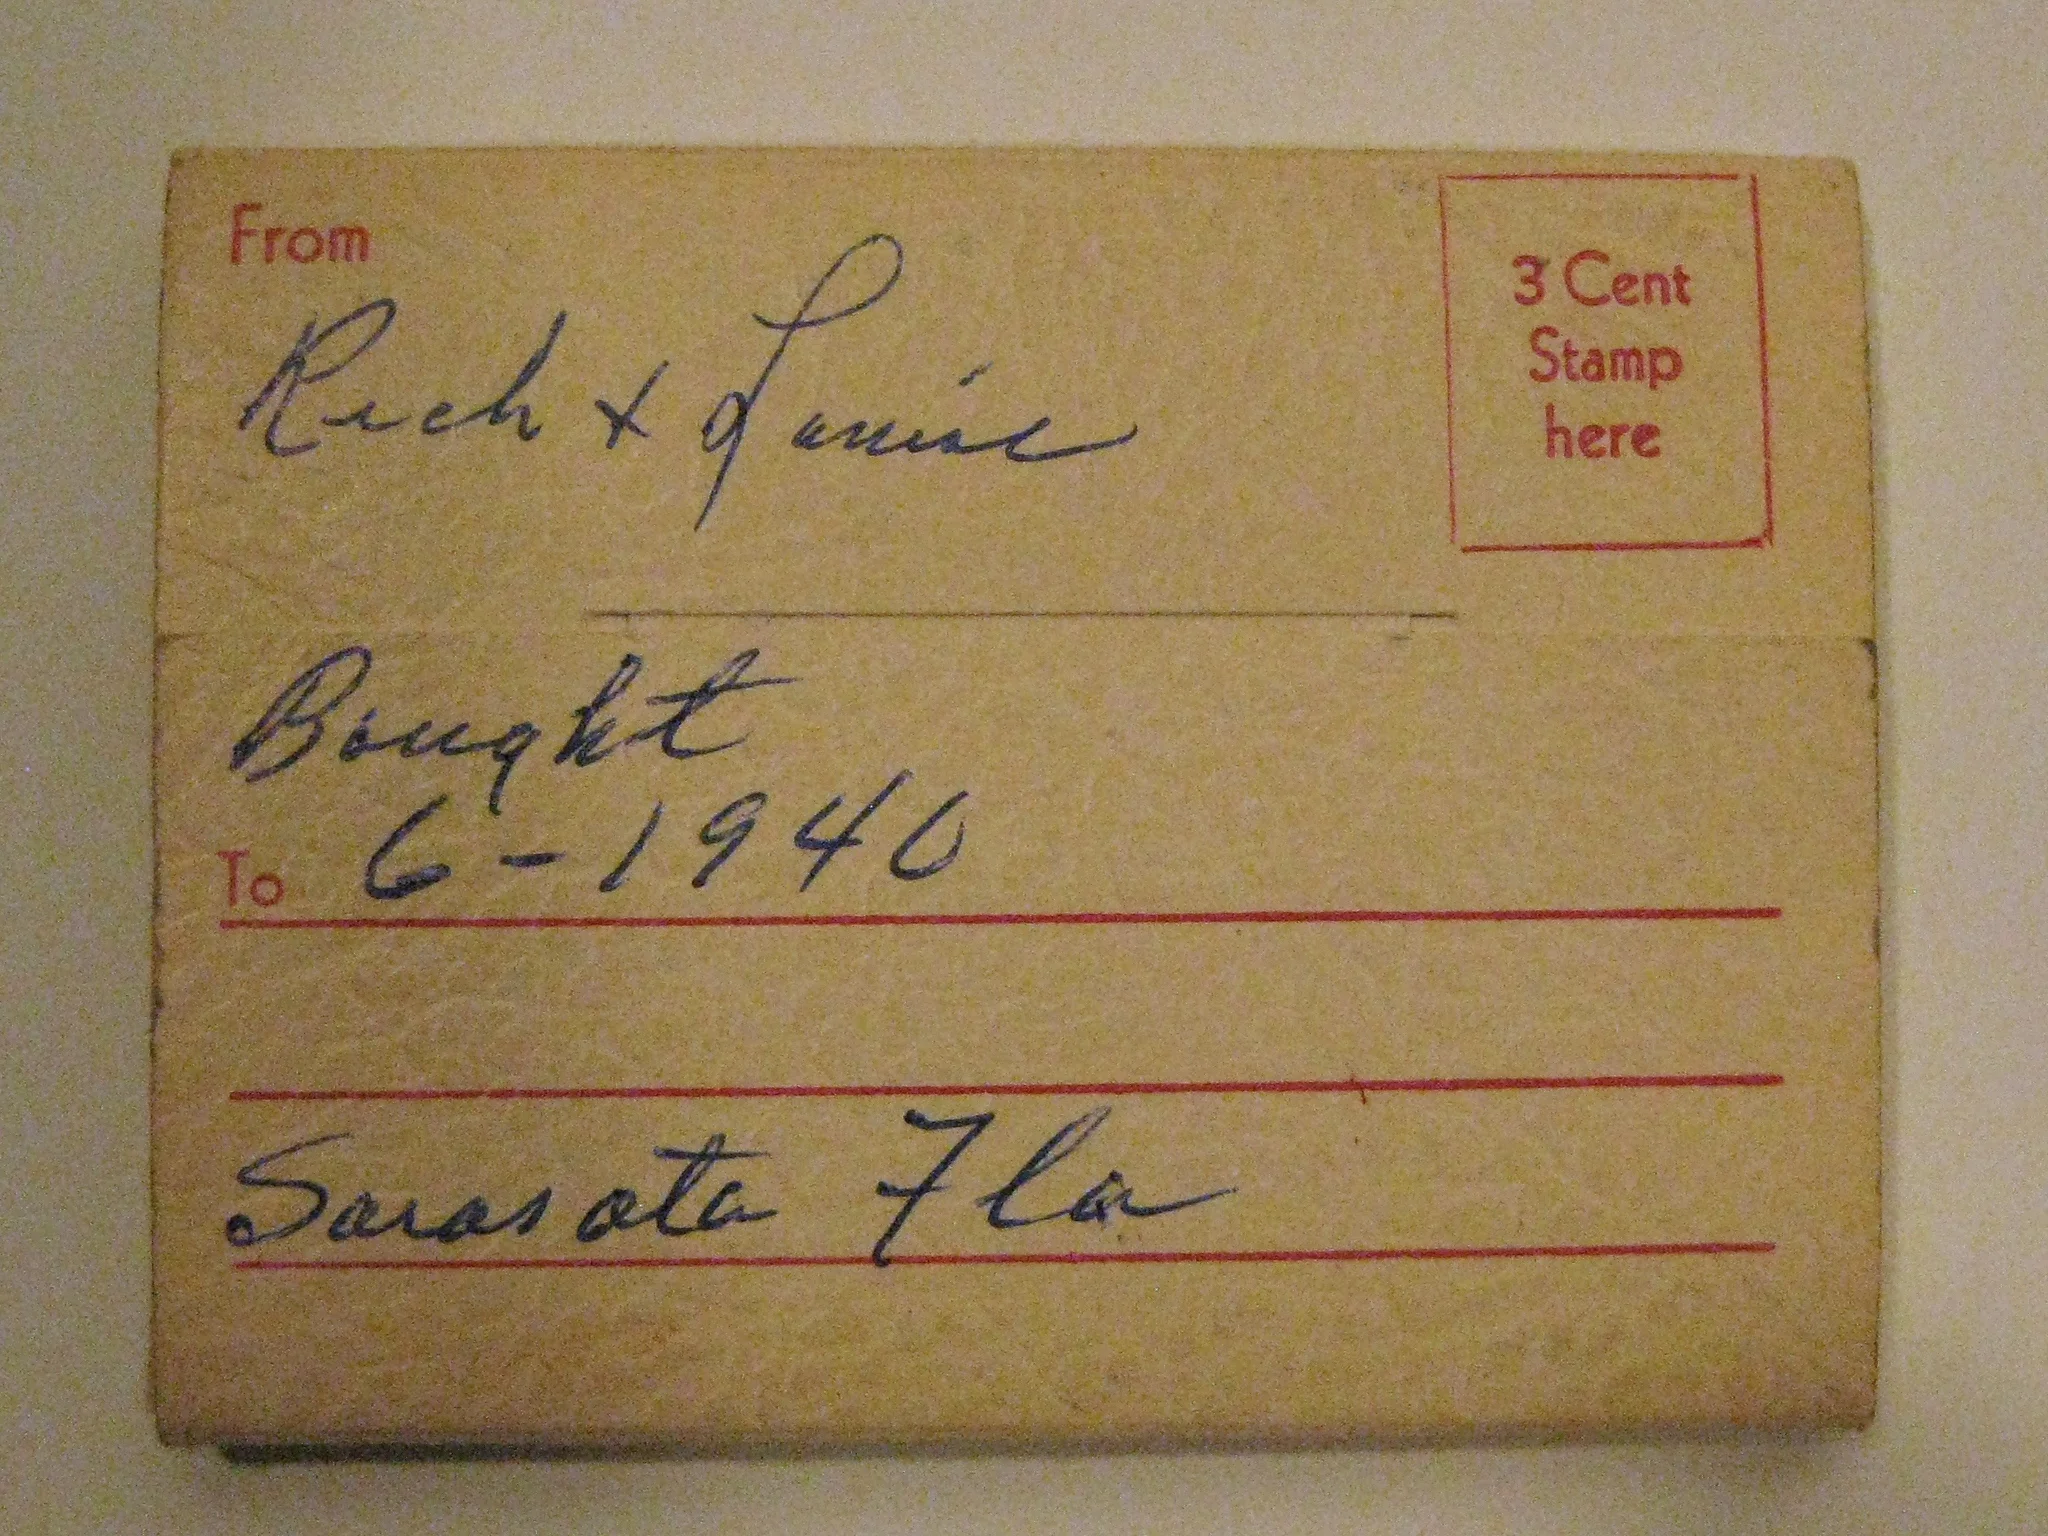 From
3 Cent
Stamp
here
Rich + Louise
Bought
To 6-1940
Sarasota Fla